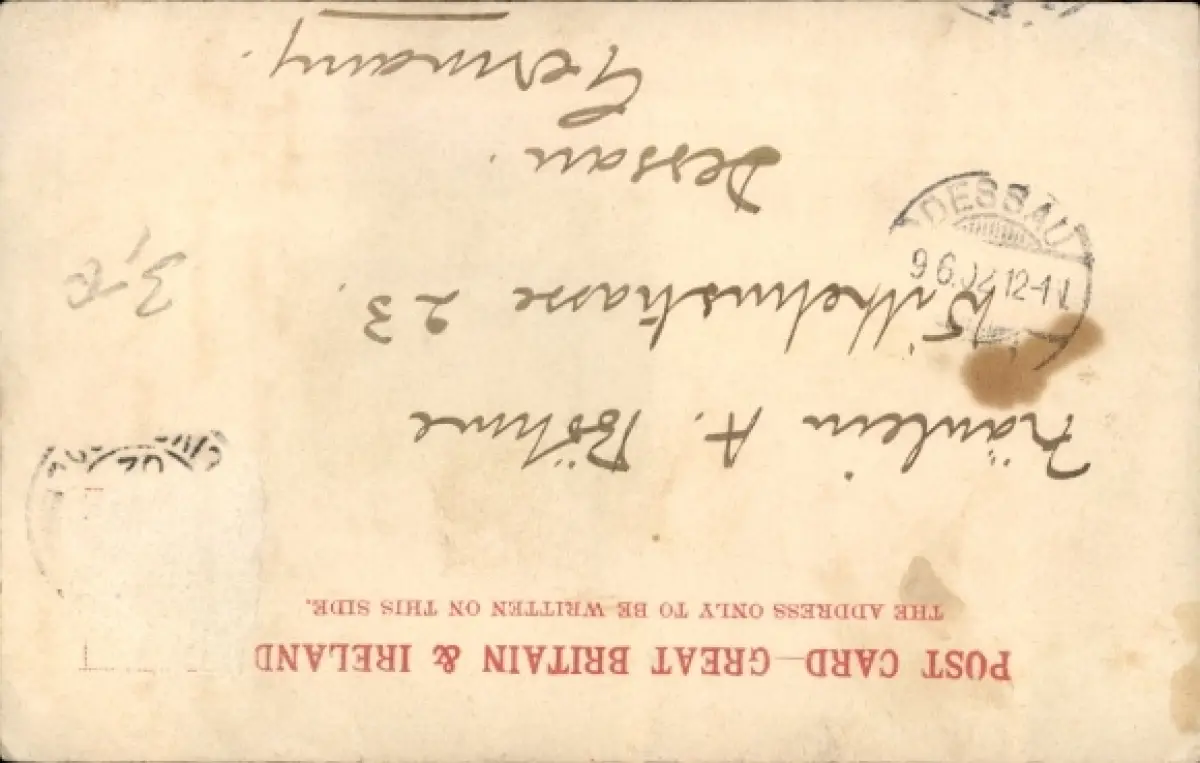 POST CARD—GREAT BRITAIN & IRELAND
THE ADDRESS ONLY TO BE WRITTEN ON THIS SIDE.
Fräulein A. Böhme
Wilhelmstrasse 23.
Dessau.
Germany.
DESSAU
9 6 02 12-1 N
3,-